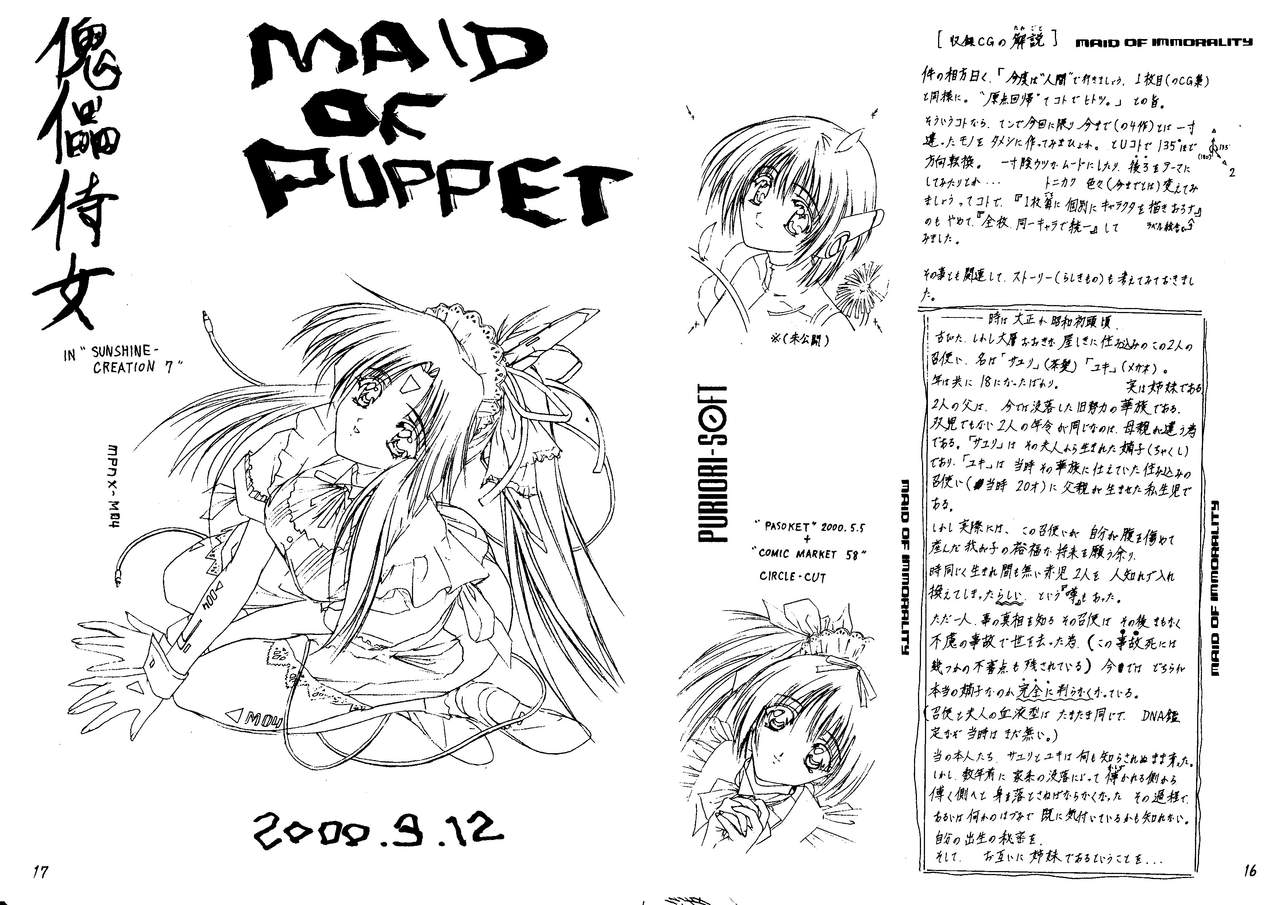 [収録CGの解説]
たわごと
MAID OF IMMORALITY
件の相方曰く、「今度は"人間"で行きましょう、1枚目(のCG集)
と同様に。"原点回帰"てコトでヒトツ。」との旨。
そういうコトなら、てンで今回に限り今まで(の4作)とは一寸
違ったモノをタメシに作ってみませひょか。とUコトで135°ほど
方向転換。 一寸陰ウツなムードにしたり、後ろをテーマに
してみたりとか・・・ トニカク色々(今までとは)変えてみ
ましょうってコトで、『1枚毎に個別にキャラクタを描きおろす』
のもやめて、『全枚、同一キャラで統一』して
みました。
ラベル絵含む
(180)
135
2
その事とも関連して、ストーリー(らしきもの)も考えてみておきまし
た。
時は大正か昭和初頭頃、
古びた、しかし大層おおきな屋しきに住み込みのこの2人の
召使い、名は「サユリ」(茶髪)「ユキ」(メガネ)。
年は共に18になったばかり。 実は姉妹である
2人の父は、今では没落した旧勢力の華族である。
双児でもない2人の年令が同じなのは、母親が違う為
である。「サユリ」はその夫人から生まれた嫡子(ちゃくし)
であり、「ユキ」は当時その華族に仕えていた住み込みの
召使い(当時20才)に父親が生ませた私生児で
ある。
しかし実際には、この召使いが自分が腹を傷めて
産んだ我が子の裕福な将来を願う余り、
時同じく生まれ間も無い赤児2人を人知れず入れ
換えてしまったらしい、という『噂』もあった。
ただ一人、事の真相を知るその召使は その後まもなく
不慮の事故で世を去った為(この事故死には
幾つかの不審点も残されている)今では どちらが
本当の嫡子なのか完全に判らなくなっている。
(召使と夫人の血液型はたまたま同じで、DNA鑑
定など当時はまだ無い。)
当の本人たち、サユリとユキは何も知らされぬまま育った。
しかし、数年前に家系の没落によって傅かれる側から
傅く側へと身を落とさねばならなくなった その過程で、
あるいは何かのはずみで既に気付いているかも知れない。
自分の出生の秘密を、
そして、お互いに姉妹であるということを・・・
MAID OF IMMORALITY
MAID OF IMMORALITY
16
※(未公開)
PURIORI-SOFT
"PASOKET" 2000.5.5
+
"COMIC MARKET 58"
CIRCLE-CUT
MAID
OF
PUPPET
傀儡侍女
IN "SUNSHINE-
CREATION 7"
MPNX-M04
M04
M04
2000.9.12
17